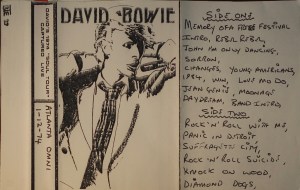 DAVID'S 1974 "SOUL TOUR"
CAPTURED LIVE
ATLANTA OMNI
1-12-74
DAVID BOWIE
SIDE ONE
MEMORY OF A FREE FESTIVAL
INTRO, REBEL REBEL,
JOHN IM ONLY DANCING,
SORROW,
CHANGES, YOUNG AMERICANS,
1984,
JEAN GENIE, MOONAGE
DAYDREAM, BAND INTRO,
SIDE TWO
ROCK'N'ROLL WITH ME,
PANIC IN DETROIT
SUFFRAGETTE CITY,
ROCK'N'ROLL SUICIDE,
KNOCK ON WOOD,
DIAMOND DOGS,